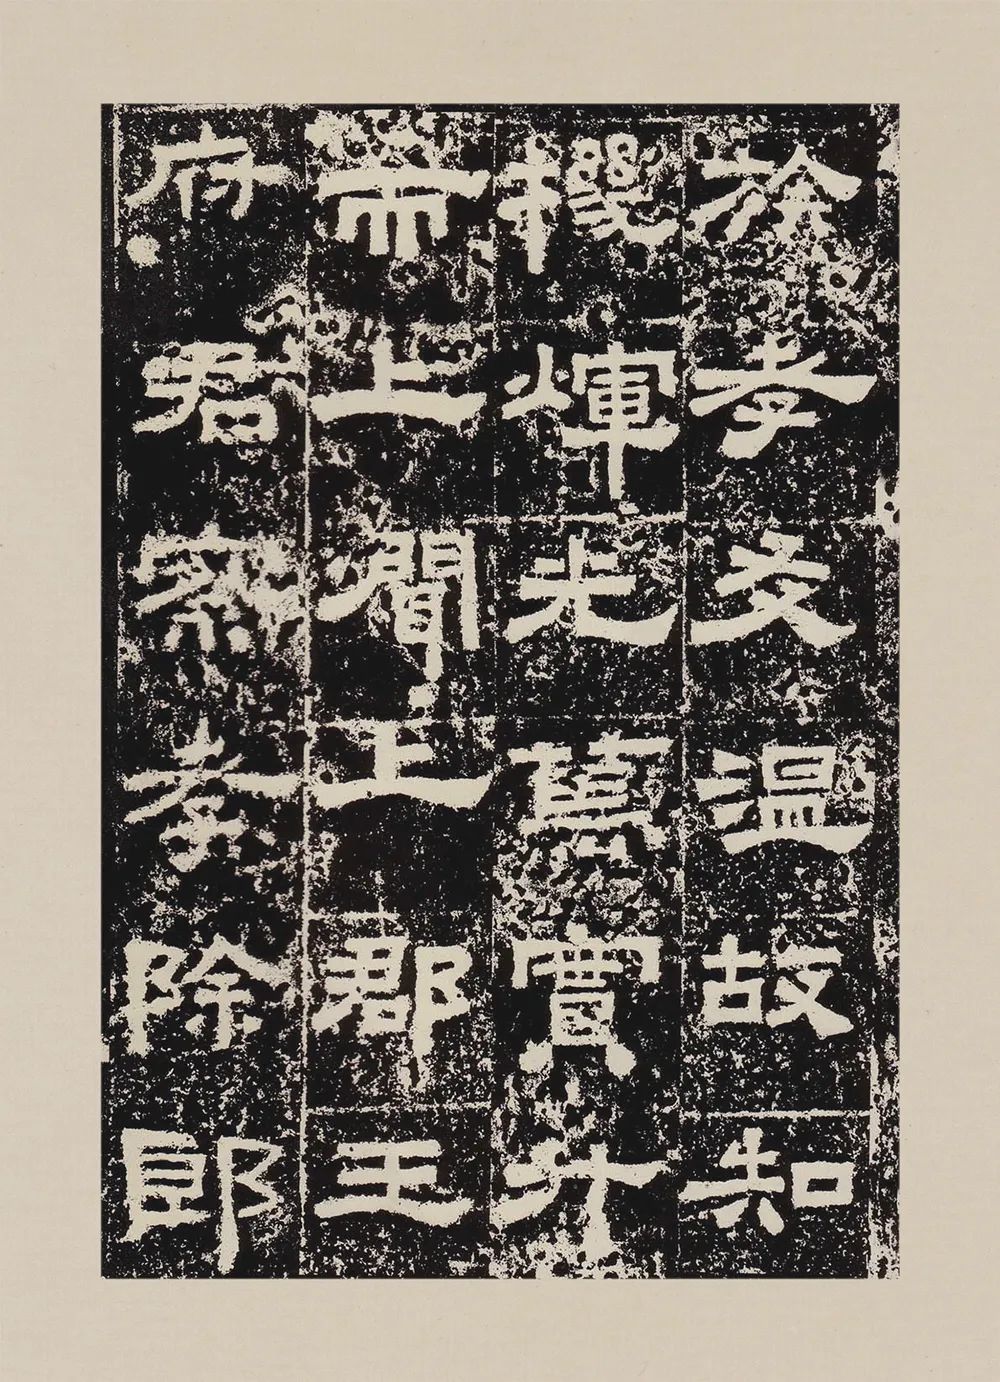 族孝友温故知
機煇光篤實升
而上聞上郡王
府君察孝除郎